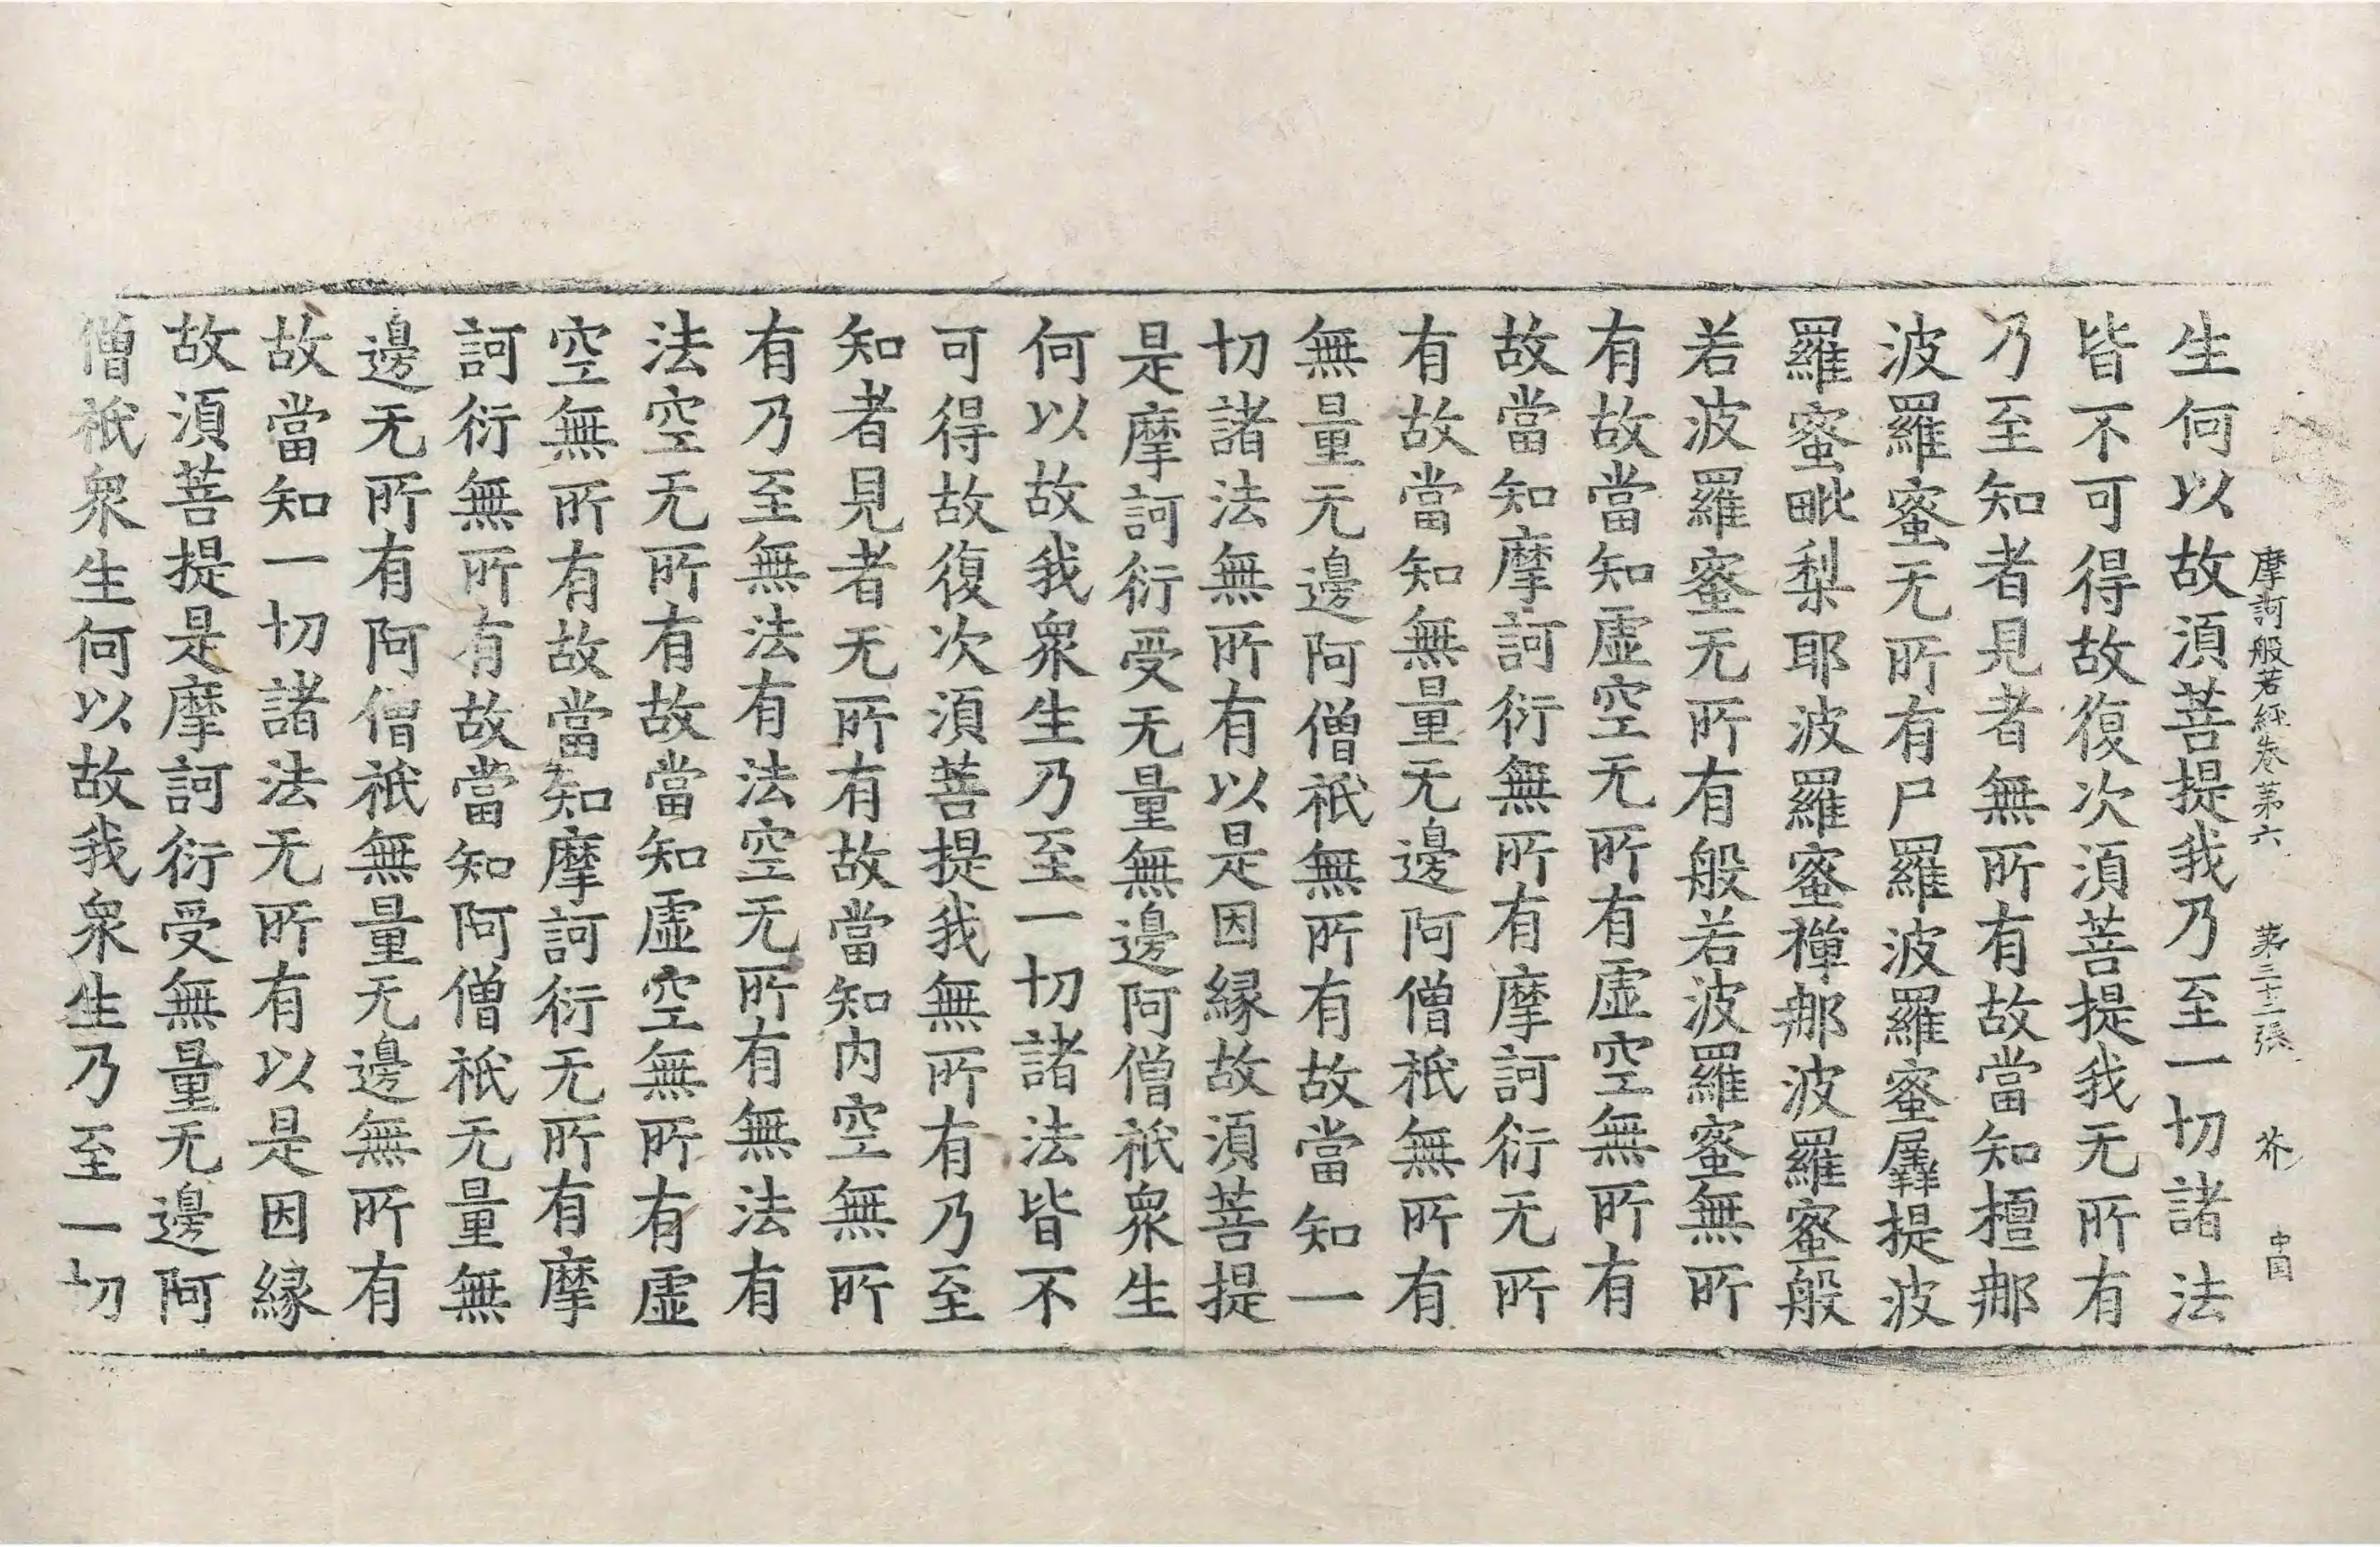 摩訶般若經卷第六 第三十二張 芥 中国
生何以故須菩提我乃至一切諸法
皆不可得故復次須菩提我无所有
乃至知者見者無所有故當知檀那
波羅蜜无所有尸羅波羅蜜羼提波
羅蜜毗梨耶波羅蜜禪那波羅蜜般
若波羅蜜无所有般若波羅蜜無所
有故當知虛空无所有虛空無所有
故當知摩訶衍無所有摩訶衍无所
有故當知無量无邊阿僧祇無所有
無量无邊阿僧祇無所有故當知一
切諸法無所有以是因緣故須菩提
是摩訶衍受无量無邊阿僧祇衆生
何以故我衆生乃至一切諸法皆不
可得故復次須菩提我無所有乃至
知者見者无所有故當知内空無所
有乃至無法有法空无所有無法有
法空无所有故當知虛空無所有虛
空無所有故當知摩訶衍无所有摩
訶衍無所有故當知阿僧祇无量無
邊无所有阿僧祇無量无邊無所有
故當知一切諸法无所有以是因緣
故須菩提是摩訶衍受無量无邊阿
僧祇衆生何以故我衆生乃至一切